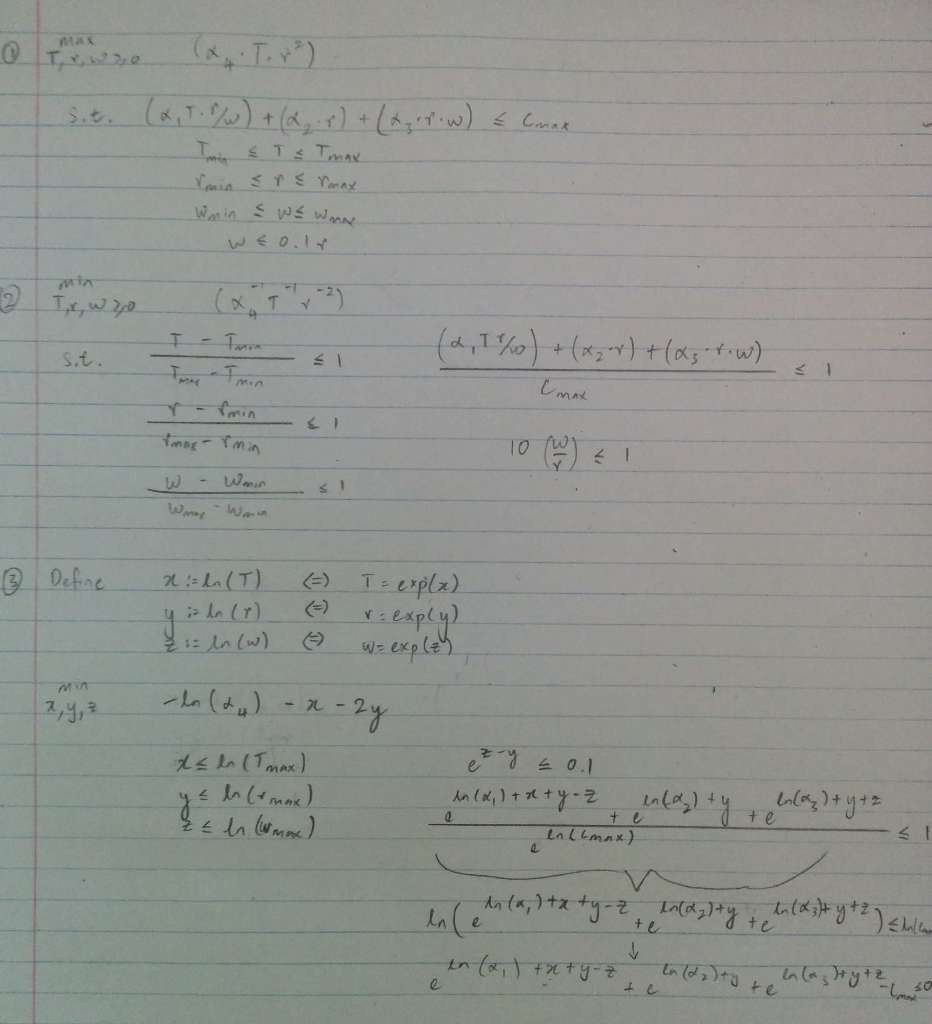 ① max T, r, w ≥ 0 (α₄ · T · r²)
s.t. (α₁ T · r/w) + (α₂ · r) + (α₃ · r · w) ≤ Cmax
Tmin ≤ T ≤ Tmax
rmin ≤ r ≤ rmax
wmin ≤ w ≤ wmax
w ≤ 0.1 r
② min T, r, w ≥ 0 (α₄⁻¹ T⁻¹ r⁻²)
s.t. (T − Tmin) / (Tmax − Tmin) ≤ 1
((α₁ T r/w) + (α₂ · r) + (α₃ · r · w)) / Cmax ≤ 1
(r − rmin) / (rmax − rmin) ≤ 1
10 (w/r) ≤ 1
(w − wmin) / (wmax − wmin) ≤ 1
③ Define x := ln(T) (=) T = exp(x)
y := ln(r) (=) r = exp(y)
z := ln(w) (=) w = exp(z)
min x, y, z −ln(α₄) − x − 2y
x ≤ ln(Tmax) e^(z−y) ≤ 0.1
y ≤ ln(rmax)
z ≤ ln(wmax)
(e^(ln(α₁)+x+y−z) + e^(ln(α₂)+y) + e^(ln(α₃)+y+z)) / e^(ln(Cmax)) ≤ 1
ln(e^(ln(α₁)+x+y−z) + e^(ln(α₂)+y) + e^(ln(α₃)+y+z)) ≤ ln(
↓
e^(ln(α₁)+x+y−z) + e^(ln(α₂)+y) + e^(ln(α₃)+y+z) − Cmax ≤ 0